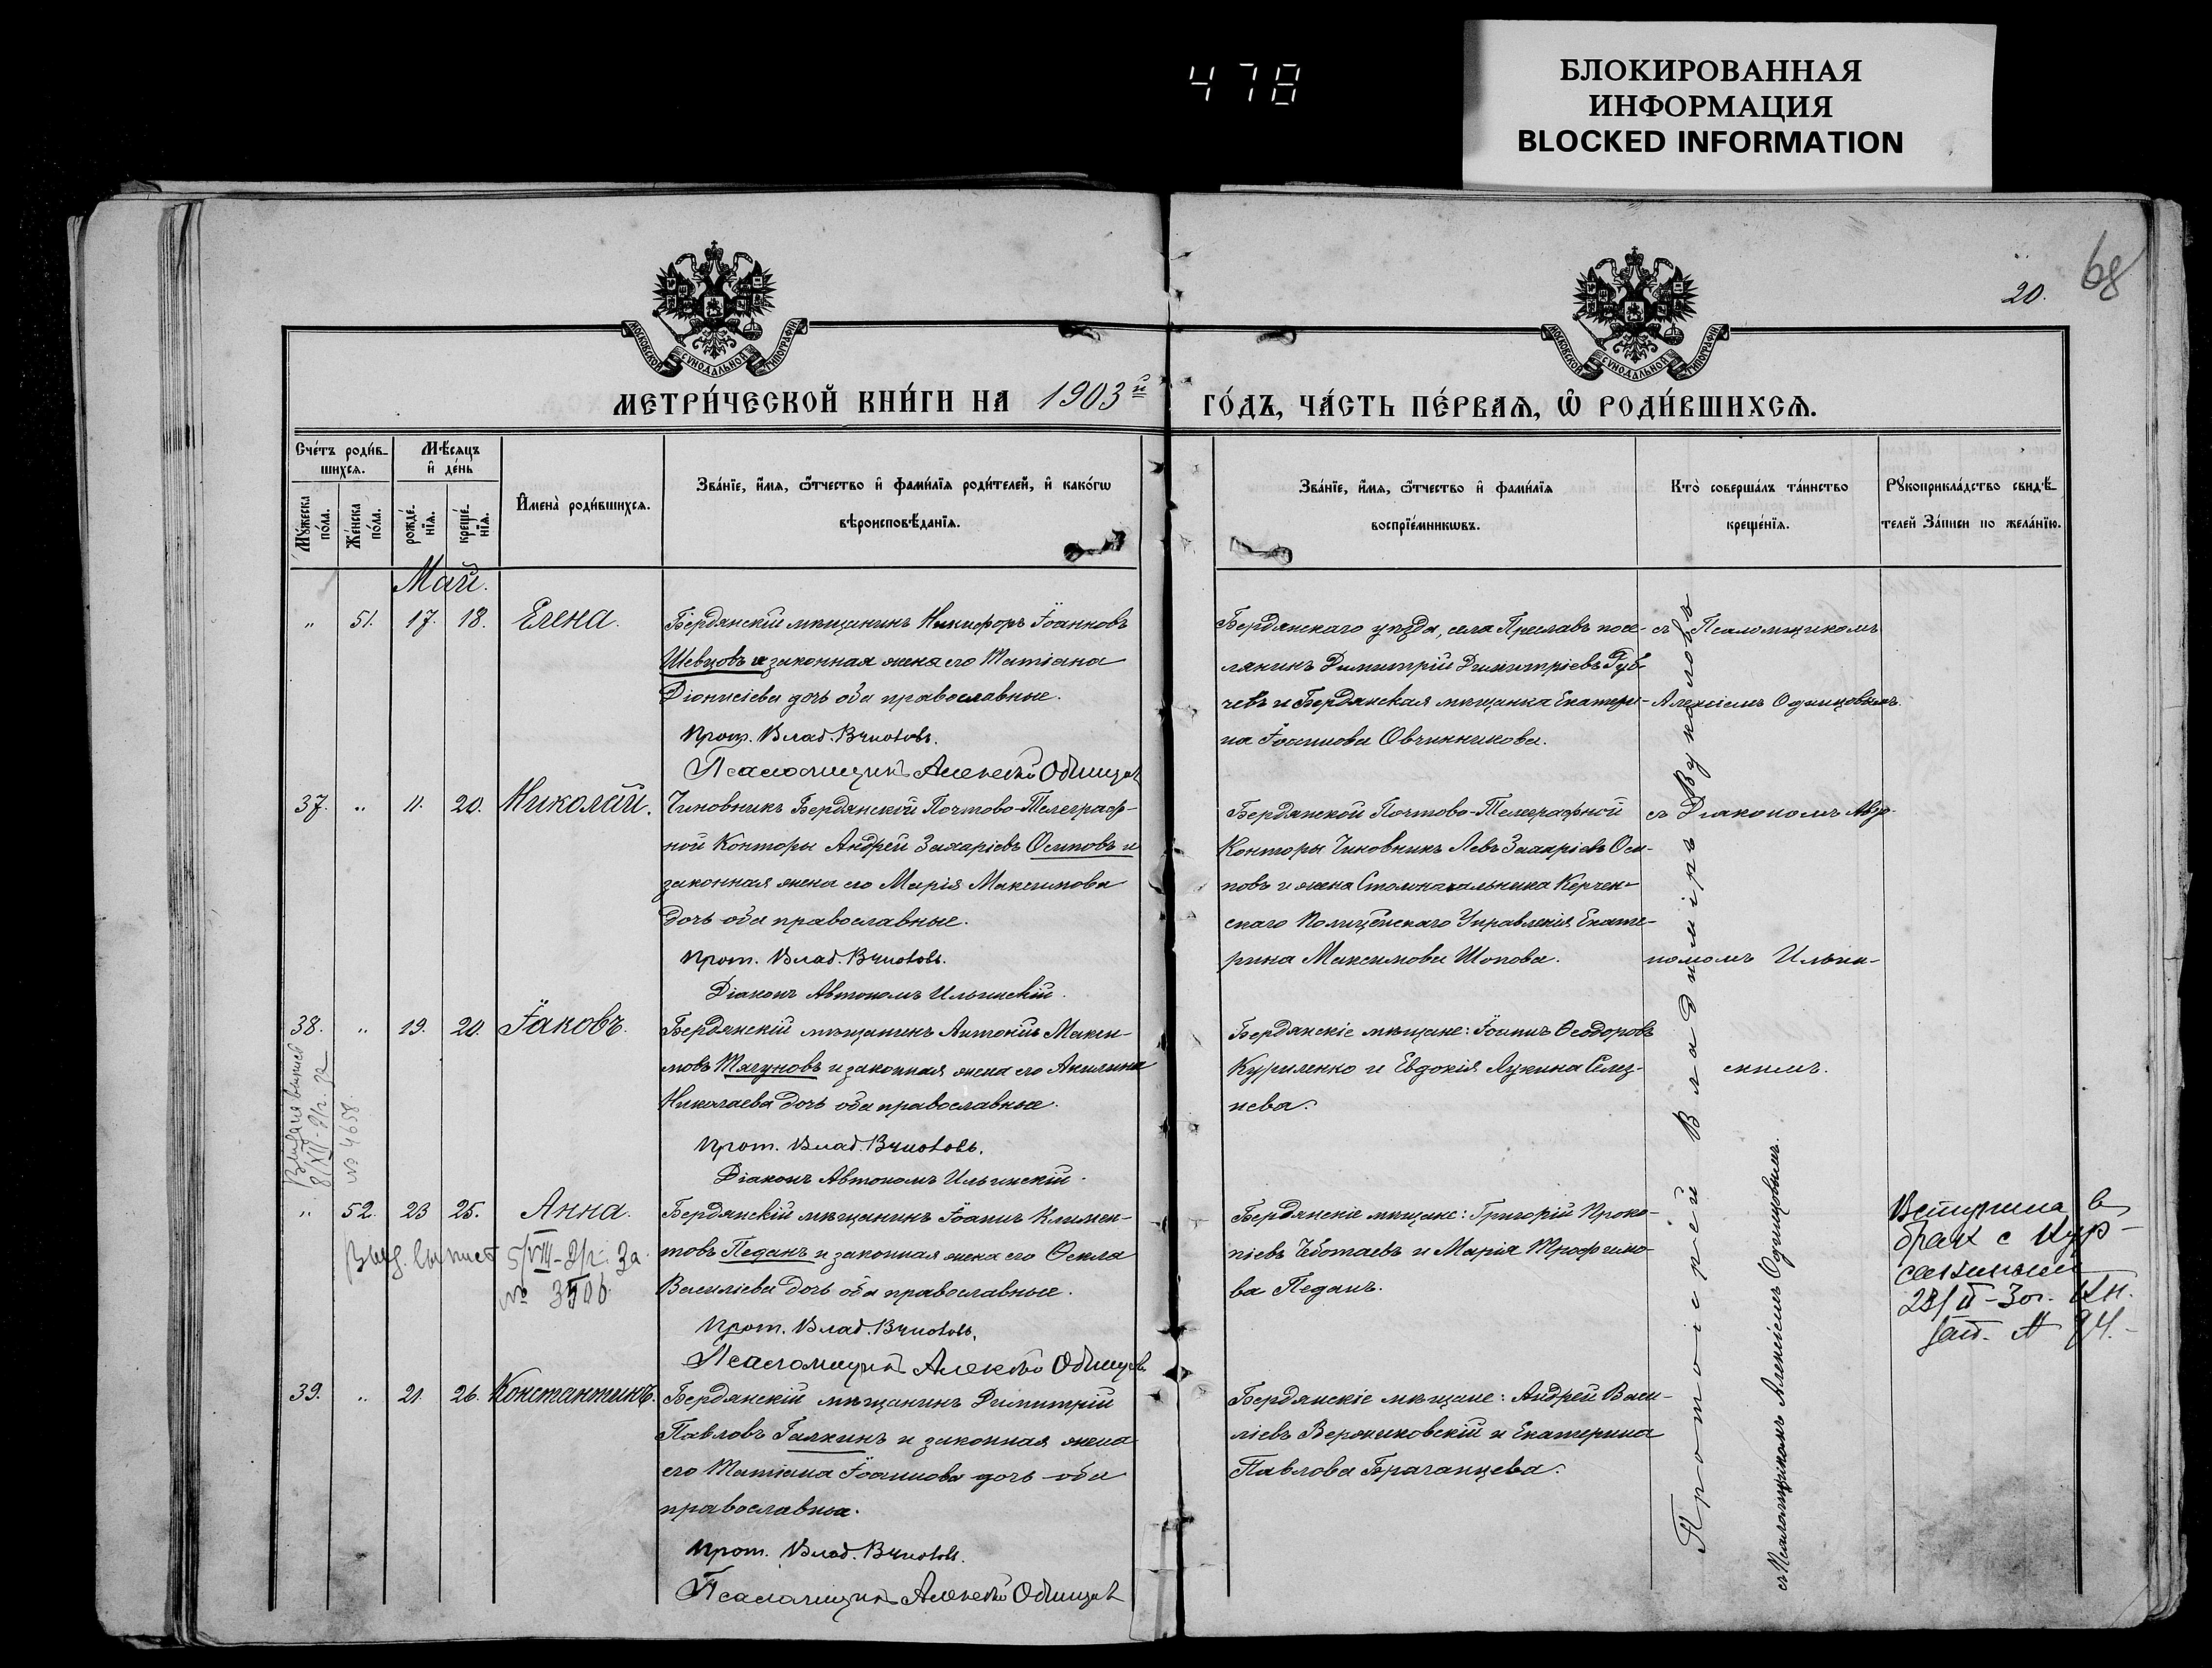 478
БЛОКИРОВАННАЯ
ИНФОРМАЦИЯ
BLOCKED INFORMATION
68
20.
МОСКОВСКОЙ СѴНОДАЛЬНОЙ ТИПОГРАФІИ
МОСКОВСКОЙ СѴНОДАЛЬНОЙ ТИПОГРАФІИ
МЕТРИ́ЧЕСКОЙ КНИ́ГИ НА 1903й
ГО́ДЪ, ЧА́СТЬ ПЕ́РВАѦ, Ѽ РОДИ́ВШИХСѦ.
Сче́тъ роди́в-
шихсѧ.
Мѣ́сяцъ
и҆ де́нь
Мꙋ́жеска
по́ла.
Же́нска
по́ла.
рожде́-
нїѧ.
креще́-
нїѧ.
И҆мена̀ роди́вшихсѧ.
Зва́нїе, и҆́мѧ, ѻ҆́тчество и҆ фами́лїѧ роди́телей, и҆ како́гѡ
вѣроисповѣ́данїѧ.
Зва́нїе, и҆́мѧ, ѻ҆́тчество и҆ фами́лїѧ
воспрїе́мникѡвъ.
Кто̀ соверша́лъ та́инство
креще́нїѧ.
Рꙋкоприкла́дство свидѣ́-
телей за́писи по жела́нїю.
Май.
„ 51. 17. 18. Елена.
Бердянскій мѣщанинъ Никифоръ Іоанновъ
Шевцовъ и законная жена его Татіана
Діонисіева дочь оба православные.
Прот. Влад. Вуколовъ.
Псаломщикъ Алексѣй Одинцовъ
Бердянскаго уѣзда, села Преславъ посе-
лянинъ Димитрій Димитріевъ
чевъ и Бердянская мѣщанка Екатери-
на Іоаннова Овчинникова.
съ Псаломщикомъ
Алексіемъ Одинцовымъ.
37. „ 11. 20. Николай.
Чиновникъ Бердянской Почтово-Телеграф-
ной Конторы Андрей Захаріевъ Осиповъ и
законная жена его Марія Максимова
дочь оба православные.
Прот. Влад. Вуколовъ.
Діаконъ Автономъ Ильинскій.
Бердянской Почтово-Телеграфной
Конторы Чиновникъ Левъ Захаріевъ Оси-
повъ и жена Столоначальника Керчен-
скаго Полицейскаго Управленія Екате-
рина Максимова Шопова.
съ Діакономъ Авто-
номомъ Ильин-
скимъ.
38. „ 19. 20. Іаковъ.
Бердянскій мѣщанинъ Антоній Макси-
мовъ Тягуновъ и законная жена его Акилина
Николаева дочь оба православные.
Прот. Влад. Вуколовъ.
Діаконъ Автономъ Ильинскій.
Бердянскіе мѣщане: Іоаннъ Ѳеодоровъ
Куриленко и Евдокія Лукина Селез-
нева.
8/XII-
№ 4658.
„ 52. 23 25. Анна.
Бердянскій мѣщанинъ Іоаннъ Климен-
товъ Педанъ и законная жена его Ѳекла
Василіева дочь оба православные.
Прот. Влад. Вуколовъ.
Псаломщикъ Алексѣй Одинцовъ
Бердянскіе мѣщане: Григорій Проко-
піевъ Чеботаевъ и Марія Трофимо-
ва Педанъ.
Выд. выпись 5/VIII- За
№
Вступила в
брак с Кур-

23/II-30г.
№ 94.-
39. „ 21. 26. Константинъ.
Бердянскій мѣщанинъ Димитрій
Павловъ Галкинъ и законная жена
его Татіана Іоаннова дочь оба
православные.
Прот. Влад. Вуколовъ.
Псаломщикъ Алексѣй Одинцовъ
Бердянскіе мѣщане: Андрей Васи-
ліевъ и Екатерина
Павлова
Протоіерей Владиміръ Вуколовъ
съ Псаломщикомъ Алексіемъ Одинцовымъ.